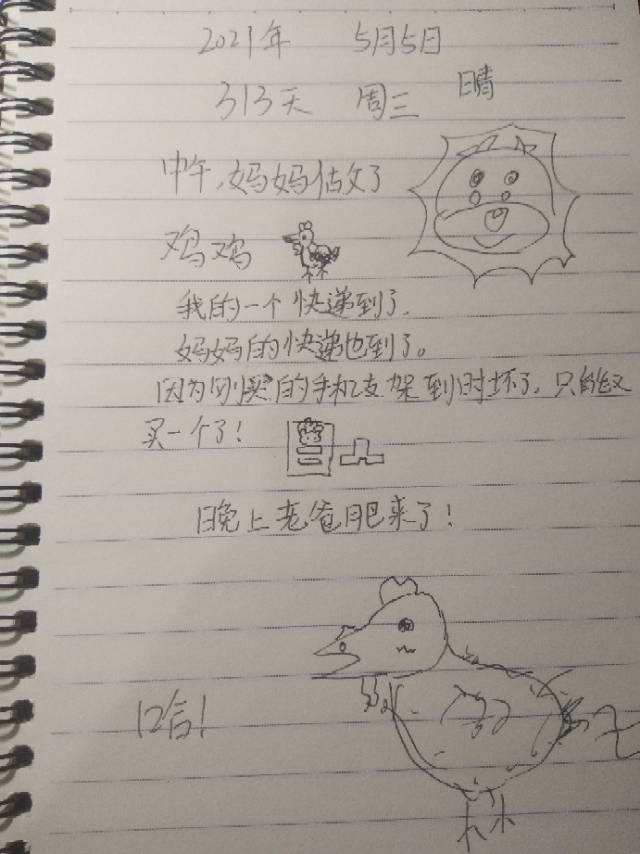 2021年 5月5日
313天 周三 晴
中午,妈妈估文了
鸡鸡
我的一个快递到了.
妈妈的快递也到了。
因为刚买的手机支架到时坏了,只能又
买一个了!
晚上老爸肥来了!
哈!